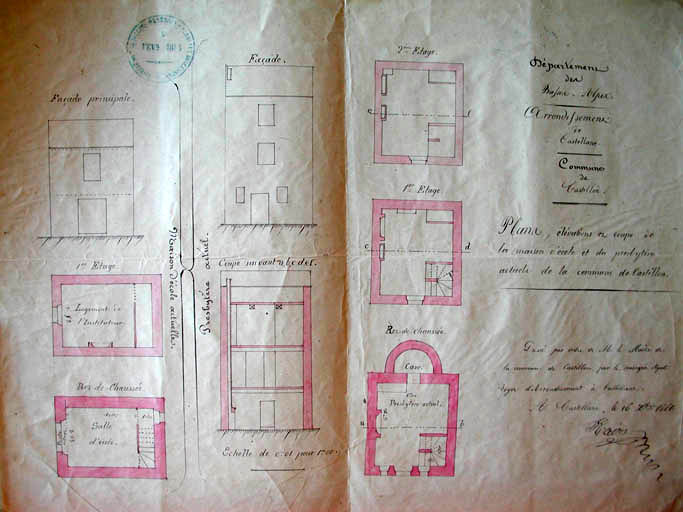 Façade principale.
1er Etage
Logement de
l'Instituteur.
Rez de Chaussée
Salle
d'école.
Maison d'école actuelle.
Presbytère actuel.
Façade.
Coupe suivant a, b, c, d, e, f.
Echelle de 0,01 pour 1m00.
2me Etage.
e
f
1er Etage
c
d
Rez de Chaussée
Cave
Presbytère actuel.
a
b
Département
des
Basses-Alpes
Arrondissement
de
Castellane
Commune
de
Castillon.
Plans, élévations et coupe de
la maison d'école et du presbytère
actuels de la commune de Castillon.
Dressé par ordre de M. le Maire de
la commune de Castillon par le soussigné
voyer d'arrondissement à Castellane.
A Castellane, le 16